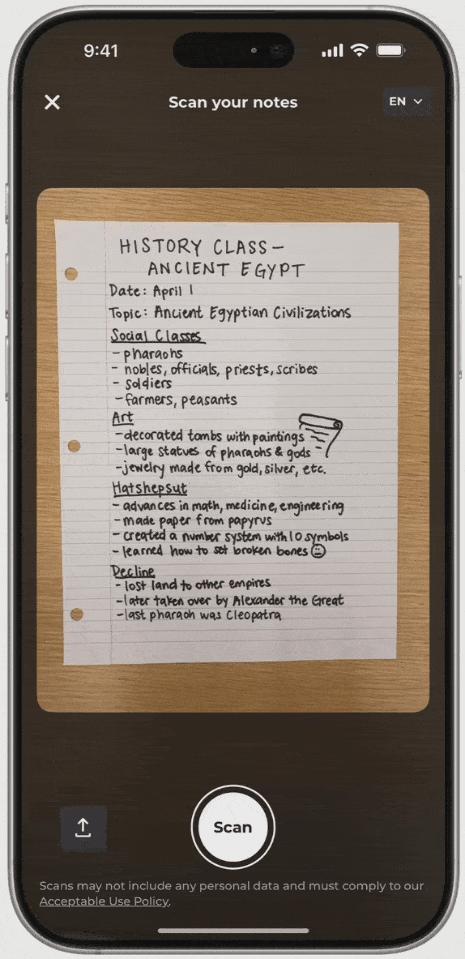 9:41
Scan your notes
EN
HISTORY CLASS—
ANCIENT EGYPT
Date: April 1
Topic: Ancient Egyptian Civilizations
Social Classes
- pharaohs
- nobles, officials, priests, scribes
- soldiers
- farmers, peasants
Art
- decorated tombs with paintings
- large statues of pharaohs & gods
- jewelry made from gold, silver, etc.
Hatshepsut
- advances in math, medicine, engineering
- made paper from papyrus
- created a number system with 10 symbols
- learned how to set broken bones
Decline
- lost land to other empires
- later taken over by Alexander the Great
- last pharaoh was Cleopatra
Scan
Scans may not include any personal data and must comply to our
Acceptable Use Policy.